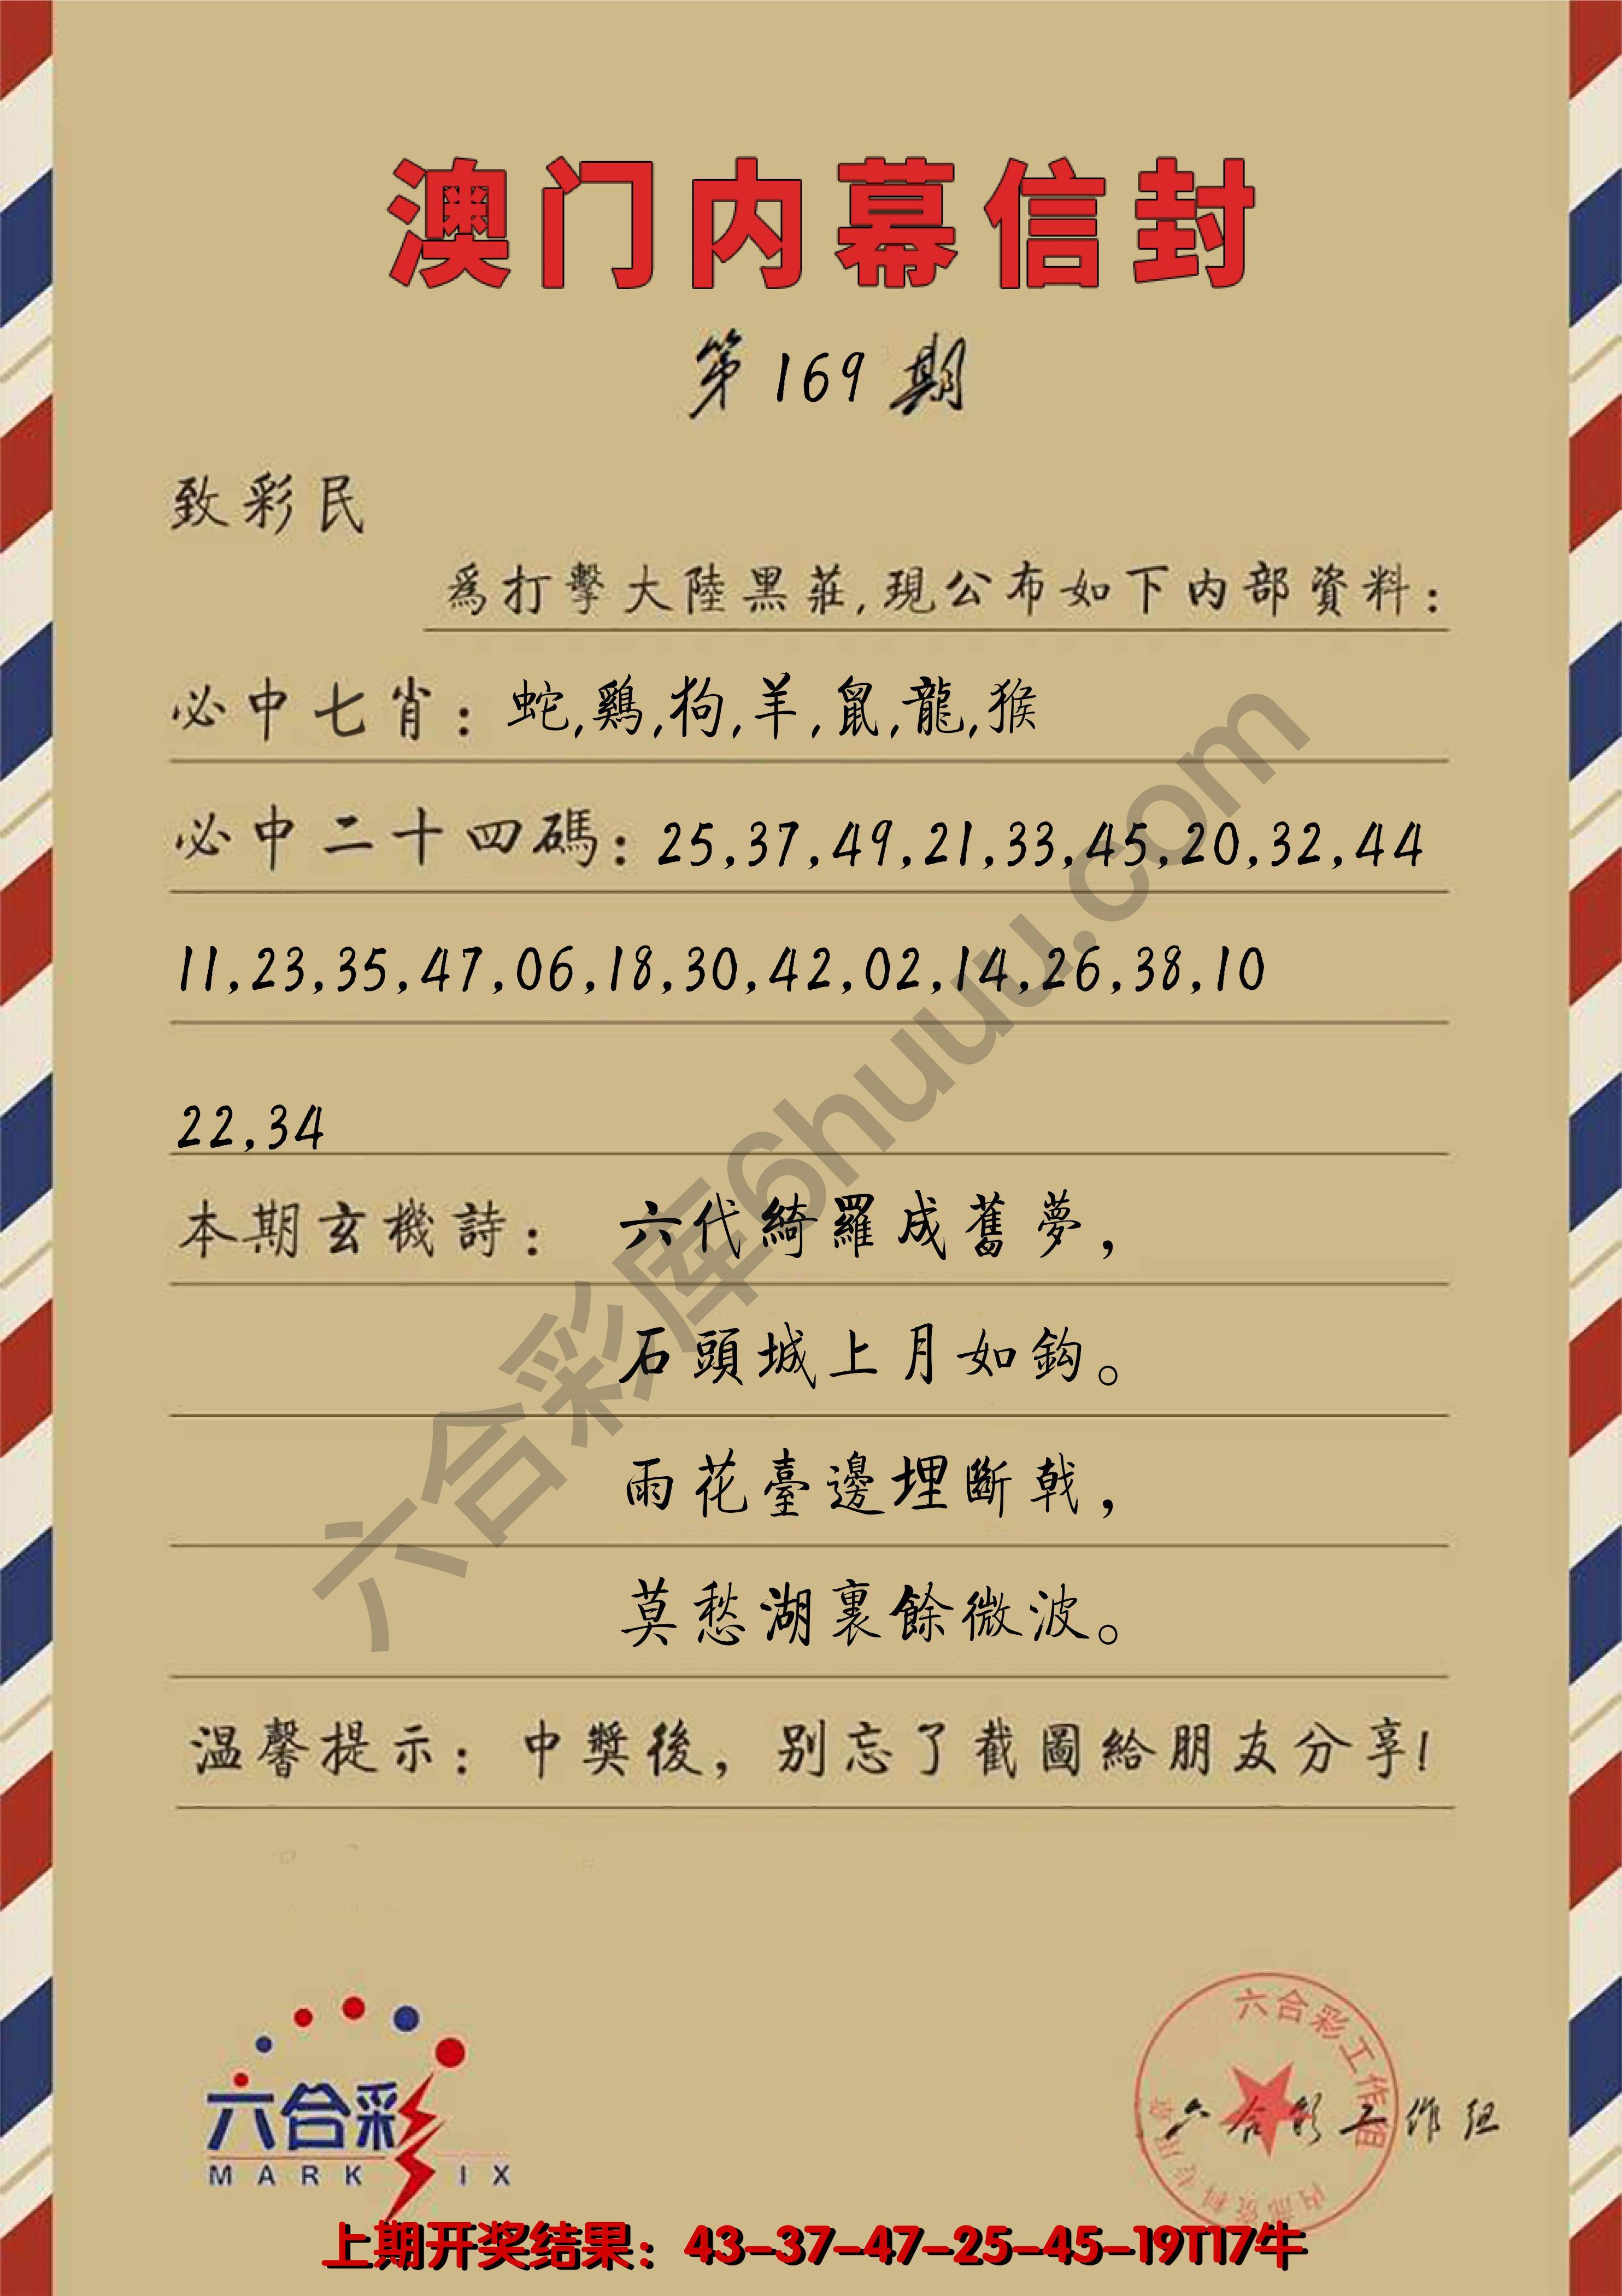 澳门内幕信封
第169期
致彩民
為打擊大陸黑莊,現公布如下内部資料:
必中七肖: 蛇,鷄,狗,羊,鼠,龍,猴
必中二十四碼: 25,37,49,21,33,45,20,32,44
11,23,35,47,06,18,30,42,02,14,26,38,10
22,34
本期玄機詩: 六代綺羅成舊夢,
石頭城上月如鈎。
雨花臺邊埋斷戟,
莫愁湖裏餘微波。
温馨提示: 中獎後, 别忘了截圖給朋友分享!
六合彩库6huuu.com
六合彩
MARK SIX
六合彩工作组
内部资料专用章
六合彩工作组
上期开奖结果: 43-37-47-25-45-19T17牛